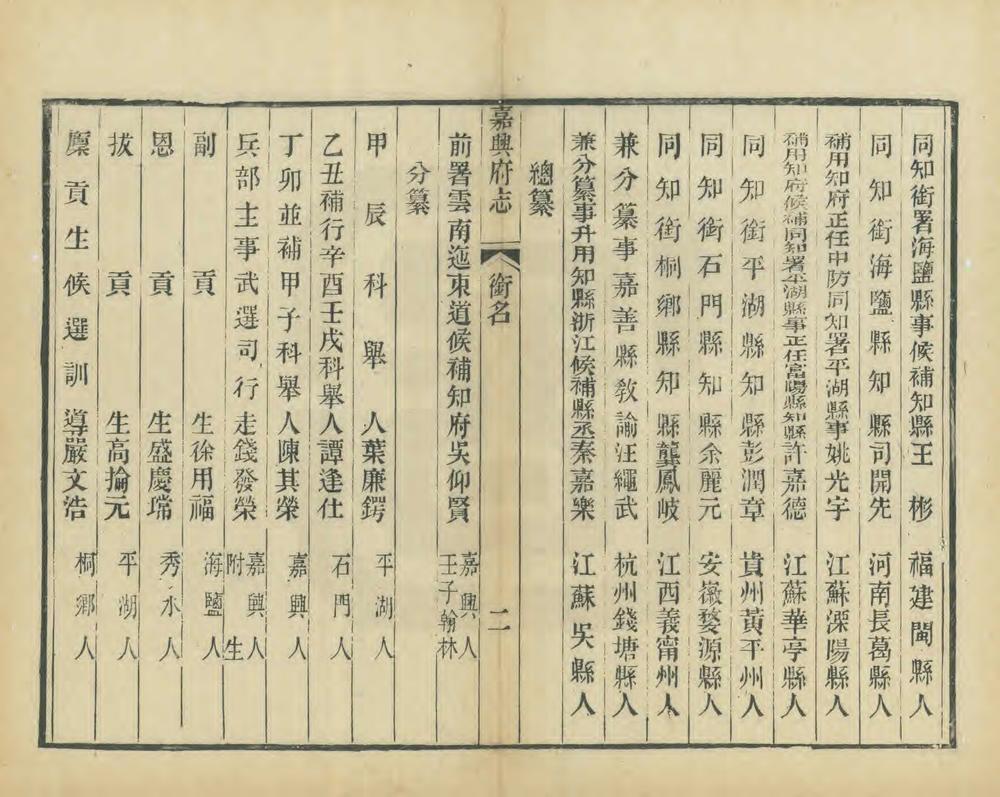 同知銜署海鹽縣事候補知縣王　彬　福建閩縣人
同知銜海鹽縣知縣司開先　河南長葛縣人
補用知府正任中防同知署平湖縣事姚光宇　江蘇溧陽縣人
補用知府候補同知署平湖縣事正任富陽縣知縣許嘉德　江蘇華亭縣人
同知銜平湖縣知縣彭潤章　貴州黃平州人
同知銜石門縣知縣余麗元　安徽婺源縣人
同知銜桐鄉縣知縣龔鳳岐　江西義甯州人
兼分纂事嘉善縣敎諭汪繩武　杭州錢塘縣人
兼分纂事升用知縣浙江候補縣丞秦嘉樂　江蘇吳縣人
總纂
嘉興府志　銜名　二
前署雲南迤東道候補知府吳仰賢　嘉興人壬子翰林
分纂
甲辰科舉人葉廉鍔　平湖人
乙丑補行辛酉壬戌科舉人譚逢仕　石門人
丁卯並補甲子科舉人陳其榮　嘉興人
兵部主事武選司行走錢發榮　嘉興人附生
副貢生徐用福　海鹽人
恩貢生盛慶瑺　秀水人
拔貢生高掄元　平湖人
廩貢生候選訓導嚴文浩　桐鄉人